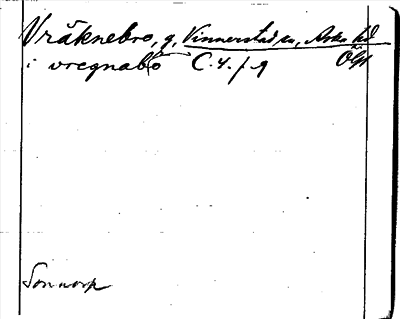 Vräknebro, g, Vinnerstad sn, Aska hd
Ög
i vregnabo C. 4. / 9
Sonnorp